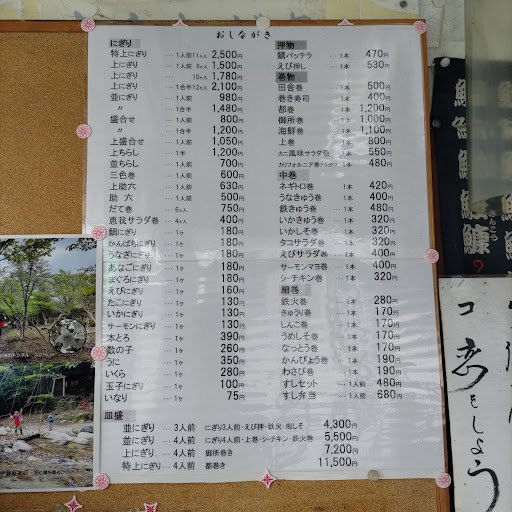 おしながき
にぎり
特上にぎり …1人前11ヶ入 2,500円
上にぎり …1人前8ヶ入 1,500円
上にぎり 10ヶ入 1,780円
上にぎり …1合半12ヶ入 2,100円
並にぎり …1人前 980円
〃 …1合半 1,480円
盛合せ …1人前 800円
〃 …1合半 1,200円
上盛合せ …1人前 1,050円
上ちらし …1半 1,200円
並ちらし …1人前 700円
三色巻 …1人前 600円
上助六 …1人前 630円
助六 …1人前 500円
だて巻 …6ヶ入 750円
恵我サラダ巻 …4ヶ入 400円
鯛にぎり …1ヶ 180円
かんぱちにぎり …1ヶ 180円
うなぎにぎり …1ヶ 180円
あなごにぎり …1ヶ 180円
まぐろにぎり …1ヶ 180円
えびにぎり …1ヶ 160円
たこにぎり …1ヶ 130円
いかにぎり …1ヶ 130円
サーモンにぎり …1ヶ 130円
本とろ …1ヶ 390円
数の子 …1ヶ 260円
うに …1ヶ 350円
いくら …1ヶ 280円
玉子にぎり …1ヶ 100円
いなり …1ヶ 75円
押物
鯖バッテラ …1本 470円
えび押し …1本 530円
巻物
田舎巻 …1本 500円
巻き寿司 …1本 400円
都巻 …1本 1,200円
御所巻 …1上 1,000円
海鮮巻 …1本 1,100円
上巻 …1本 800円
カニ風味サラダ巻 …1本 550円
カリフォルニア巻 1本 480円
中巻
ネギトロ巻 …1本 420円
うなきゅう巻 …1本 400円
鉄きゅう巻 …1本 480円
いかきゅう巻 …1本 320円
いかしそ巻 …1本 320円
タコサラダ巻 …1本 320円
えびサラダ巻 …1本 400円
サーモンマヨ巻 …1本 400円
シーチキン巻 …1本 320円
細巻
鉄火巻 …1本 280円
きゅうり巻 …1本 170円
しんこ巻 …1本 170円
うめしそ巻 …1本 170円
なっとう巻 …1本 170円
かんぴょう巻 …1本 190円
わさび巻 …1本 190円
すしセット …1人前 480円
すし弁当 …1人前 680円
皿盛
並にぎり …3人前 にぎり3人前・えび押・鉄火・梅しそ 4,300円
並にぎり …4人前 にぎり4人前・上巻・シーチキン・鉄火巻 5,500円
上にぎり …4人前 御所巻き 7,200円
特上にぎり …4人前 都巻き 11,500円
コ恋をしよう